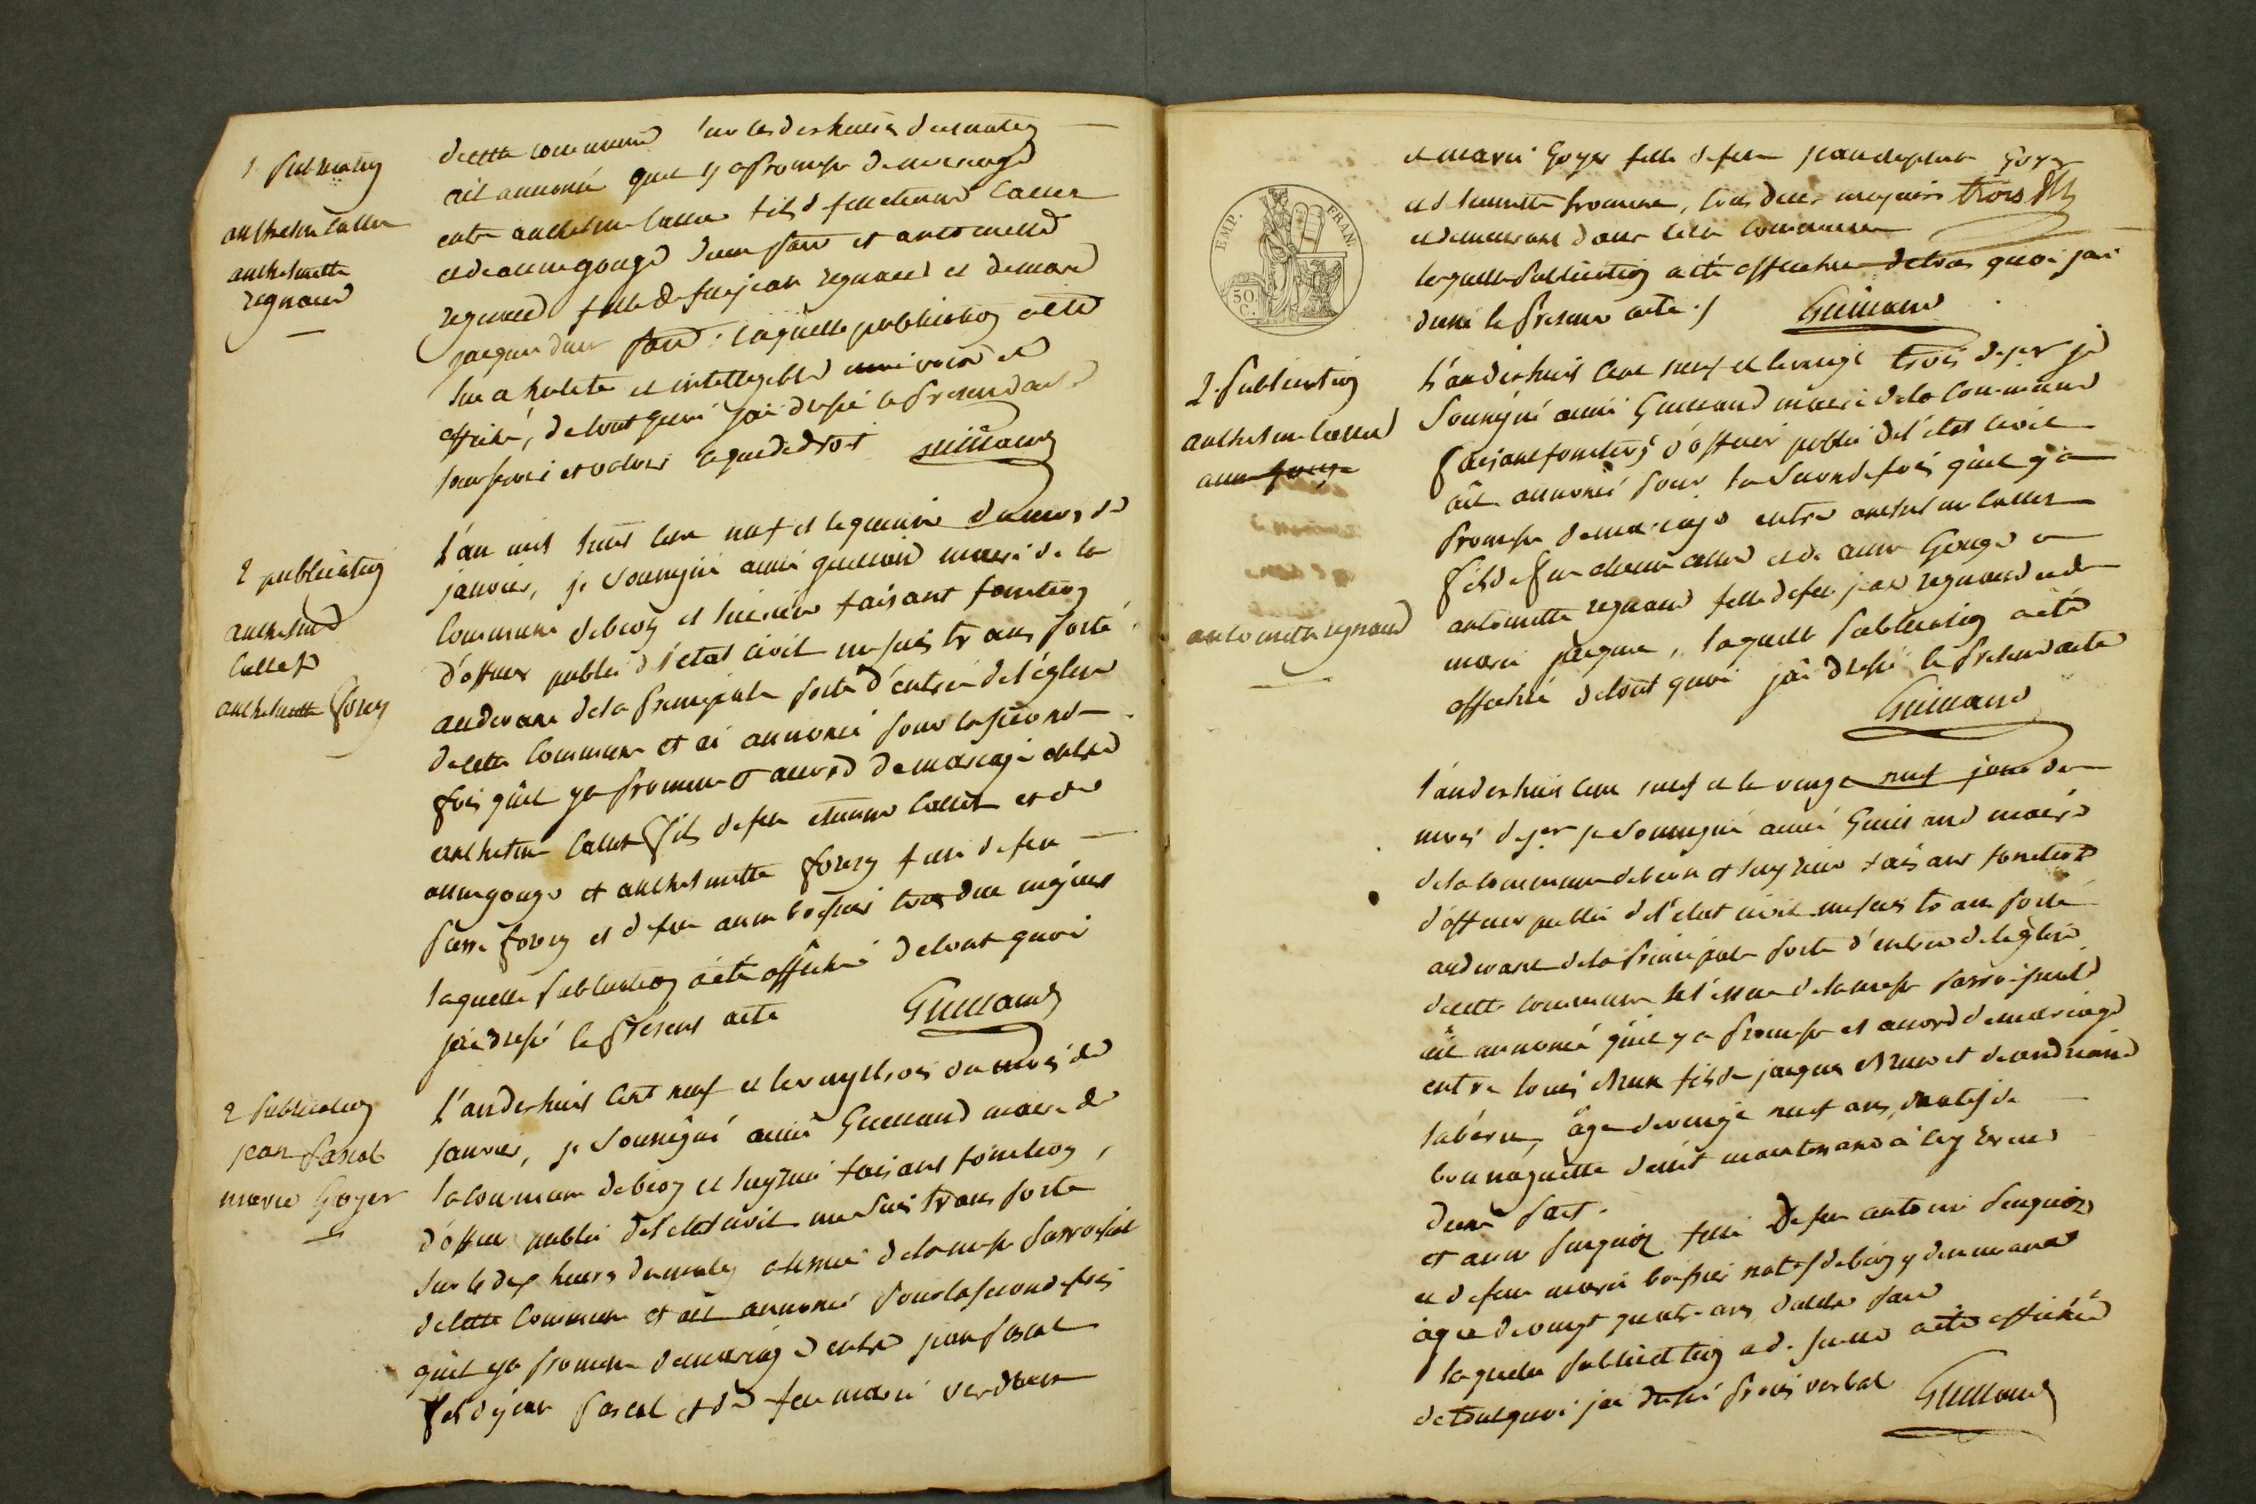 1 publication
anthelme Callet
anthelmette
regnaud
de cette commune sur les dix heures du matin
ait annoncé que il y a promesse de mariage
entre anthelme Callet fils de feu etienne Callet
et de anne gouge d'une part et antoinette
regnaud fille de feu jean regnaud et de marie
jacquin d'autre part : laquelle publication a été
lue a haute et intelligible voix et
affiché, de tout quoi j'ai dressé le present acte
pour servir et valoir a que de droit Guillaud
2 publication
anthelme
Callet
anthelmette forey
L'an mil huit cent neuf et le quinze du mois de
janvier, je soussigné aimé guillaud maire de la
Commune de béon et luirieu faisant fonction
d'officier public de l'état civil me suis transporté
au devant de la principale porte d'entrée de l'église
de cette Commune et ai annoncé pour la seconde
fois qu'il y a promesse et accord de mariage entre
anthelme Callet fils de feu etienne Callet et de
anne gouge et anthelmette forey fille de feu
pierre forey et de feu anne bossier tous deux majeurs
laquelle publication a été affiché de tout quoi
j'ai dressé le présent acte Guillaud
2 publication
jean pascal
marie Goyer
L'an dix huit cent neuf et le vingt trois du mois de
janvier, je soussigné aimé Guillaud maire de
la commune de béon et luyrieu faisant fonction,
d'officier public de l'etat civil me suis transporté
sur le dix heures du matin a l'issue de la messe parroissial
de cette Commune et ait annoncé pour la seconde fois
qu'il y a promesse de mariage entre jean pascal
fils de jean pascal et de feu marie verdet
EMP. FRAN.
50 C.
et marie Goyer fille de feu jean baptiste Goyer
et d'humette fromene, tous deux majeurs trois
et demeurant dans cette Commune
laquelle publication a été affichée de tous quoi j'ai
dressé le present acte ./ Guillaud
2 publication
anthelme Callet
anne gouge
antoinette regnaud
L'an dix huit cent neuf et le vingt trois de jer je
soussigné aimé Guillaud maire de la Commune
faisant fonction d'officier public de l'état civil
ait annoncé pour la seconde fois qu'il y a
promesse de mariage entre anthelme Callet
fils de feu etienne callet et de anne Gouge et
antoinette regnaud fille de feu jean regnaud et de
marie jacquin, laquelle publication a été
affiché de tout quoi j'ai dressé le present acte
Guillaud
L'an dix huit cent neuf et le vingt neuf jour du
mois de jer je soussigné aimé Guillaud maire
de la commune de béon et luyrieu faisant fonction
d'officier public de l'état civil me suis transporté
au devant de la principale porte d'entrée de l'église
de cette commune a l'issue de la messe parroissiale
ait annoncé qu'il y a promesse et accord de mariage
entre louis Brun fils de jacques Brun et de andreane
taberne, âgé de vingt neuf ans, natif de
demt maintenant à luyrieu
d'une part.
et anne pinguin fille de feu antoine pinguin
et de feu marie bossier natif de béon y demeurant
âgée de vingt quatre ans, d'autre part
laquelle publication a été affichée
de tout quoi j'ai dressé procès verbal Guillaud